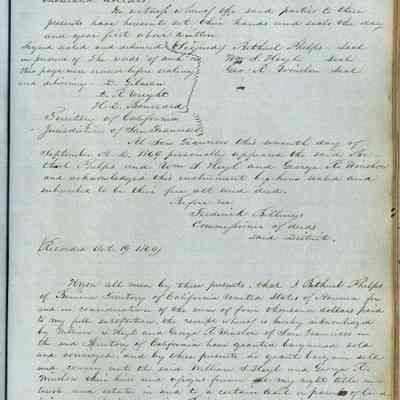 thousand dollars.
In witness whereof the said parties to these
presents have hereunto set their hands and seals the day
and year first above written
Signed sealed and delivered (Signed) Bethuel Phelps seal
in presence of The words of and in Wm S. Hoyt seal
this page were erased before sealing Geo. R. Winslow seal
and delivering - D. Gilman
D. R. Wright
H. D.
Territory of California
Jurisdiction of San Francisco
At San Francisco this seventh day of
September A. D. 1849 personally appeared the said Be-
thuel Phelps and Wm S. Hoyt and George R. Winslow
and acknowledged this instrument by them sealed and
subscribed to be their free act and deed.
Before me
Frederick Billings
Commissioner of deeds
said District.
(Recorded Oct. 19. 1849)
Know all men by these presents, that I Bethuel Phelps
of Benicia Territory of California United States of America for
and in consideration of the sum of four thousand dollars paid
to my full satisfaction, the receipt whereof is hereby acknowledged
by William S. Hoyt and George R. Winslow of San Francisco in
the said Territory of California have granted bargained sold
and conveyed and by these presents do grant bargain sell
and convey unto the said William S. Hoyt and George R.
Winslow their heirs and assigns forever all my right title in-
terest and estate in and to a certain tract or parcel of land